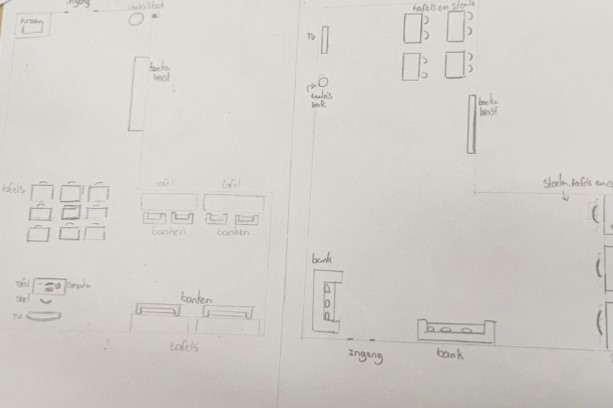 ingang
kraan
boeken
kast
tafels
tafel
tafel
banken
banken
tafel
computer
stoel
TV
banken
tafels
tafels en stoelen
TV
vuilnis
bak
boeken
kast
Stoelen, tafels en
bank
ingang
bank